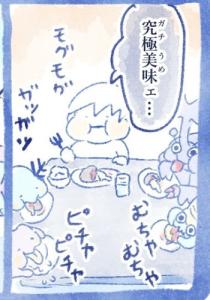 究極美味ェ…
ガチうめ
モグモグ
ガツガツ
むちゃ
むちゃ
ピチャ
ピチャ